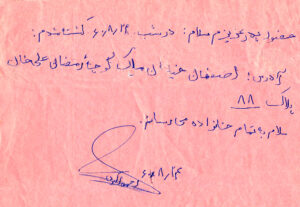 حضور پدر عزیزم سلام: در شب ۶۰/۸/۲۴ کشته شدم:
آدرس: اصفهان خیابان ملک کوچه رمضانعلی خان
پلاک ۸۸
سلام به تمام خانواده میرسانم:
۶۰/۸/۲۴